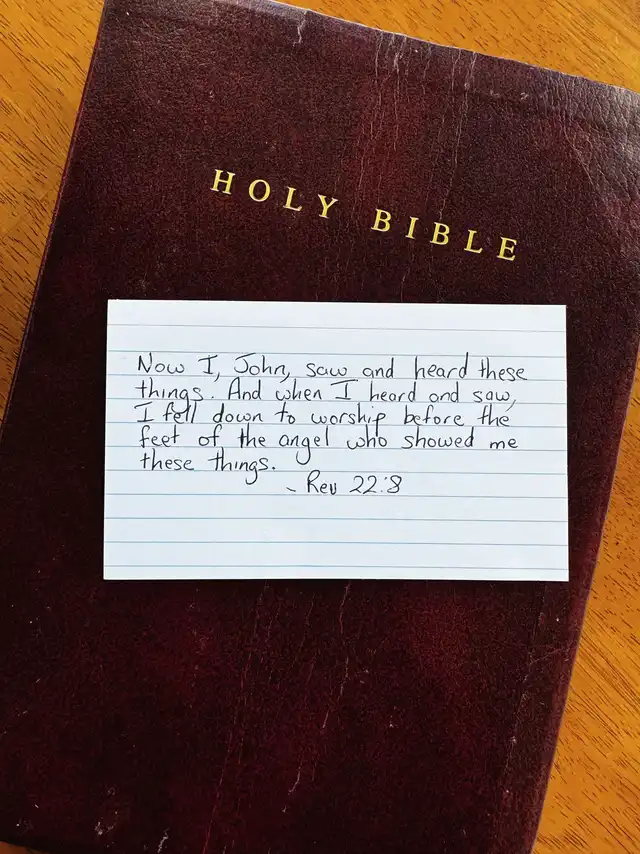 HOLY BIBLE
Now I, John, saw and heard these
things. And when I heard and saw,
I fell down to worship before the
feet of the angel who showed me
these things.
- Rev 22:8